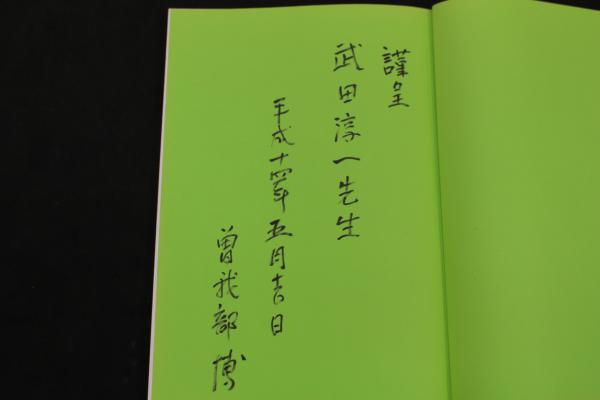 謹呈
武田淳一先生
平成十四年五月吉日
曽我部博